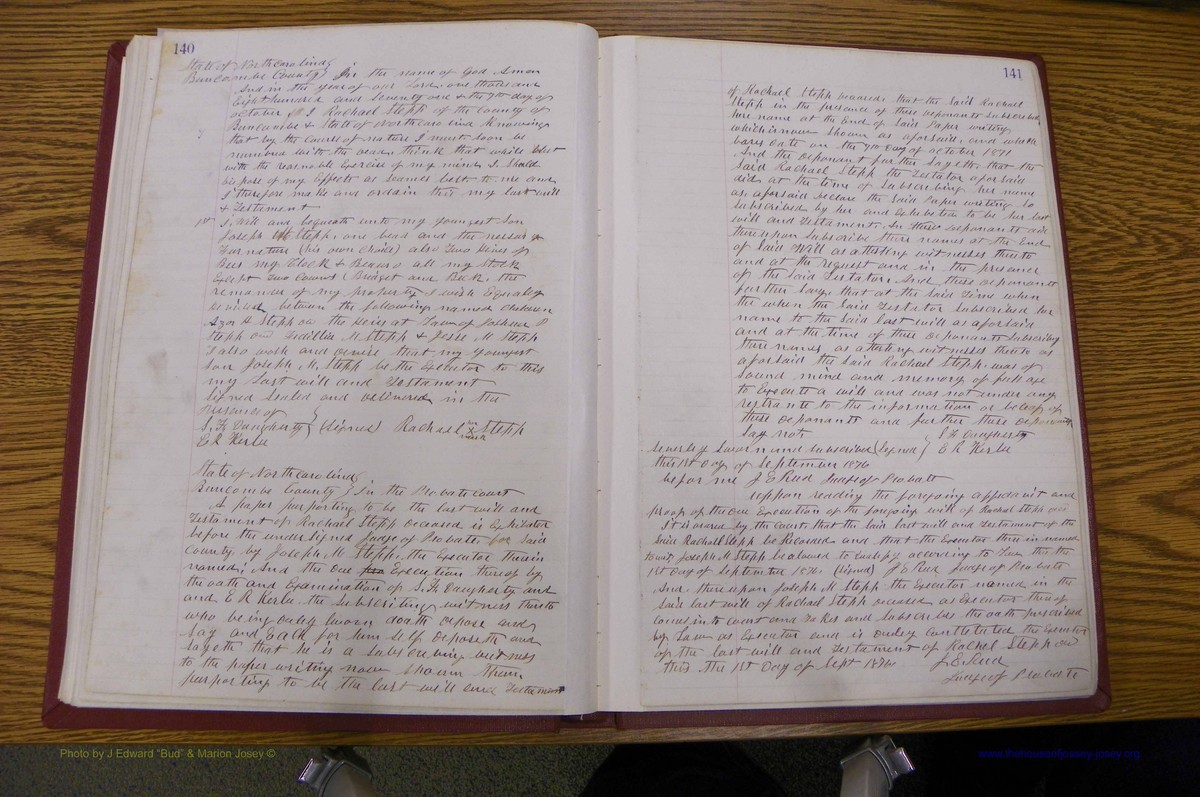 140
State of Northcarolina
Buncombe County } In the name of God Amen
And in the year of our Lord one thousand
Eight hundred and Seventy and & the 7th day of
October I Rachael Stepp of the County of
Buncombe & State of Northcarolina Knowing
that by the course of nature I must soon be
numbred with the dead think that while blest
with the reasonable Exercise of my mind I should
dispose of my Effects as seemes best to me and
I therefore make and ordain this my last will
& Testament
1st I will and bequeath unto my youngest Son
Joseph M Stepp, one bead and the nessary
Farnature (his own choice) also Two
Bees my Clock & all my Stock
Except Two Cows (Bridget and Buck) the
remainder of my property I wish Equaly
devided between the following named children
H Stepp or the Heirs at Law of Joshua P
Stepp M Stepp & Jesse M Stepp
I also wish and desire that my youngest
Son Joseph M. Stepp be the Executor to this
my Last will and Testament
Signed Sealed and delivered in the
presence of
S. F. Daugherty } (Signed) Rachael her X mark Stepp
E R Kerlee
State of Northcarolina
Buncombe County } In the Probate Court
A paper purporting to be the last will and
Testament of Rachael Stepp deceased is Exhibited
before the undersigned Judge of Probate for Said
County by Joseph M Stepp, the Executor therein
named; And the due Execution thereof by
the oath and Examination of S. F. Daugherty and
and E R Kerlee the Subscribing witness thereto
who being duly sworn doath depose and
Say and each for him self deposeth and
sayeth that he is a Subscribing witness
to the paper writing now shown them
purporting to be the last will and Testament
141
of Rachael Stepp deceased that the Said Rachael
Stepp in the presence of these deponants Subscribed
here name at the End of Said Paper writing
which is now shown as aforsaid, and which
bares Date on the 7th Day of october 187
And the deponant further Sayeth that the
Said Rachael Stepp the Testator aforsaid
did at the time of Subscribing her name
as aforsaid declare the Said Paper writing So
Subscribed by her and Exhibeted to be her last
will and Testament. In these deponants did
thereupon Subscribe there names at the End
of Said Will as attesting witnesses thereto
and at the request and in the presence
of the Said Testator. And these deponants
further Say that at the Said Time when
the when the Said Testator subscribed her
name to the Said last will as aforsaid
and at the time of these deponants Subscribing
there names as attesting witnesses thereto as
aforsaid the Said Rachael Stepp was of
Sound mind and memory of full age
to Execute a will and was not under any
restrante to the information or beleaf of
these deponants and further these deponants
Say not
Severly Sworn and subscribed (Signed) } S F Daugherty
this 1st Day of September 1876 } E R Kerlee
before me J E Reed Judge of Probate
uppon reading the forgoing affidavit and
proof of the due Execution of the forgoing will of Rachel Stepp decd
It is ordred by the Court that the Said last will and Testament of the
Said Rachall Stepp be Recorded and that the Executor there in named
towit Joseph M Stepp be alowed to qualify according to Law this the
1st Day of September 1876 (Signed) J E Reed Judge of Probate
And thereupon Joseph M Stepp the Executor named in the
Said last will of Rachael Stepp deceased as Executor thereof
comes in to court and Takes and Subscribes the oath prescribed
by Law as Executor and is duley constituted the Executor
of the last will and Testament of Rachel Stepp decd
this the 1st Day of Sept 1876
J. E. Reed
Judge of Probate
Photo by J Edward "Bud" & Marion Josey ©
www.thehouseofjossey-josey.org